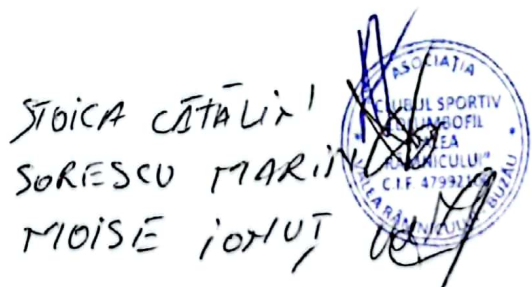 STOICA CĂTĂLIN
SORESCU MARIN
MOISE IONUȚ
ASOCIAȚIA
CLUBUL SPORTIV
COLUMBOFIL
VALEA
RÂMNICULUI"
C.I.F. 4799210
VALEA RÂMNICULUI - BUZĂU